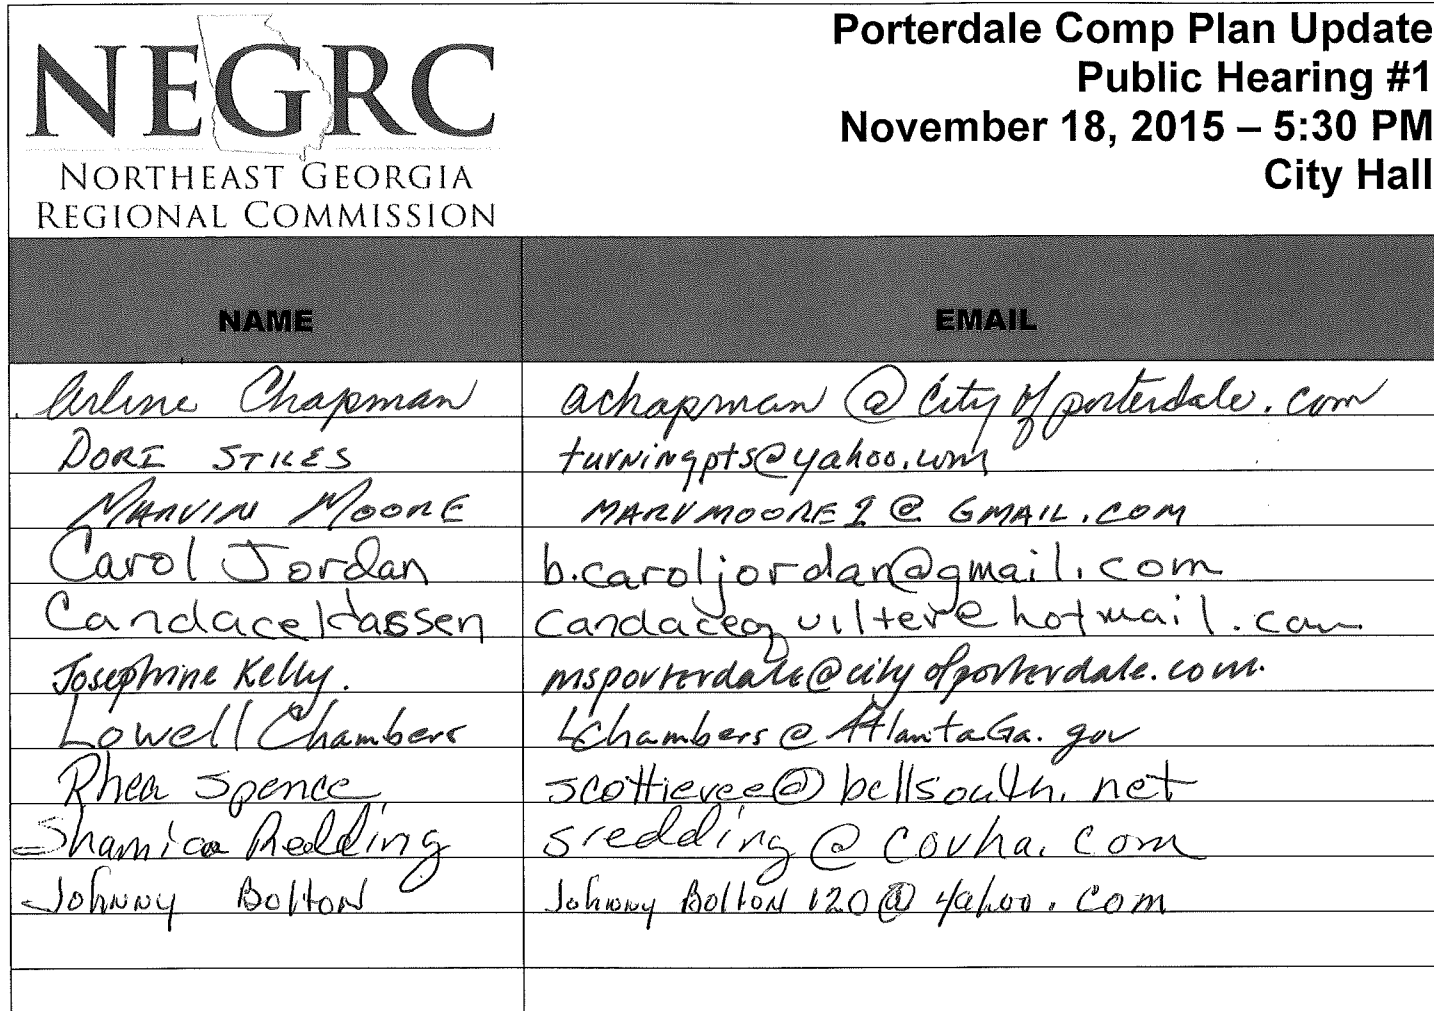 NEGRC
NORTHEAST GEORGIA
REGIONAL COMMISSION
Porterdale Comp Plan Update
Public Hearing #1
November 18, 2015 – 5:30 PM
City Hall
NAME EMAIL
Arline Chapman achapman@cityofporterdale.com
DORI STILES turningpts@yahoo.com
MARVIN MOORE MARVMOORE1@GMAIL.COM
Carol Jordan b.caroljordan@gmail.com
Candace Hassen candaceqvilter@hotmail.com
Josephine Kelly. msporterdale@cityofporterdale.com.
Lowell Chambers LChambers@AtlantaGa.gov
Rhea Spence scottievee@bellsouth.net
Shamica Redding sredding@covha.com
Johnny Bolton Johnny Bolton 120@yahoo.com